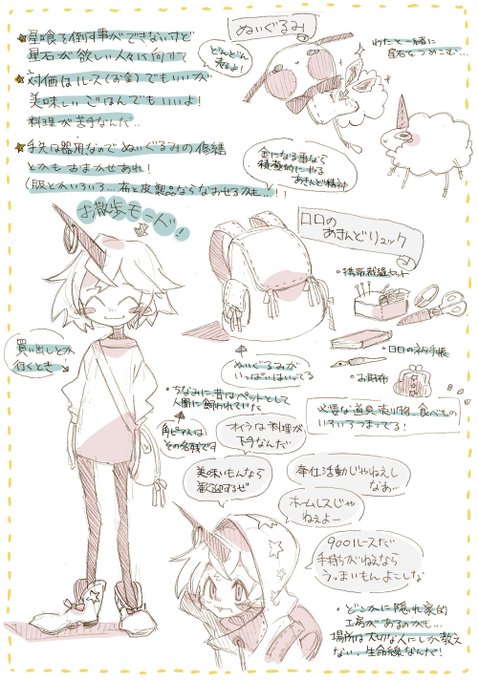 星喰を倒す事ができないけど
星石が欲しい人々に向けて
対価はルース(お金)でもいいが
美味しいごはんでもいいよ!
料理が苦手なんだ…
手先は器用なのでぬいぐるみの修繕
とかもおまかせあれ!
(服とかいろいろ…布と皮製品ならなおせるかも…!)
ぬいぐるみ
どんどん
売るよ!
わたと一緒に
星石をつめこむ…
金になる事なら
積極的にやる
あきんど精神
お散歩モード!
買い出しとか
行くとき
ロロの
あきんどリュック
・携帯裁縫セット
・ロロのネタ手帳
・お財布
ぬいぐるみが
いっぱいはいってる
必要な道具、売り物、食べもの
いろいろつまってる!
・ちなみに昔はペットとして
人間に飼われていた
角ピアスは
その名残です
オイラは料理が
下手なんだ
美味いもんなら
歓迎するぜ
奉仕活動じゃねえし
なぁ…
ホームレスじゃ
ねぇよー
900ルースだ
手持ちがねえなら
うっまいもんよこしな
・どこかに隠れ家的
工房があるのかも…
場所は大切な人にしか教え
ない、生命線なんだ!